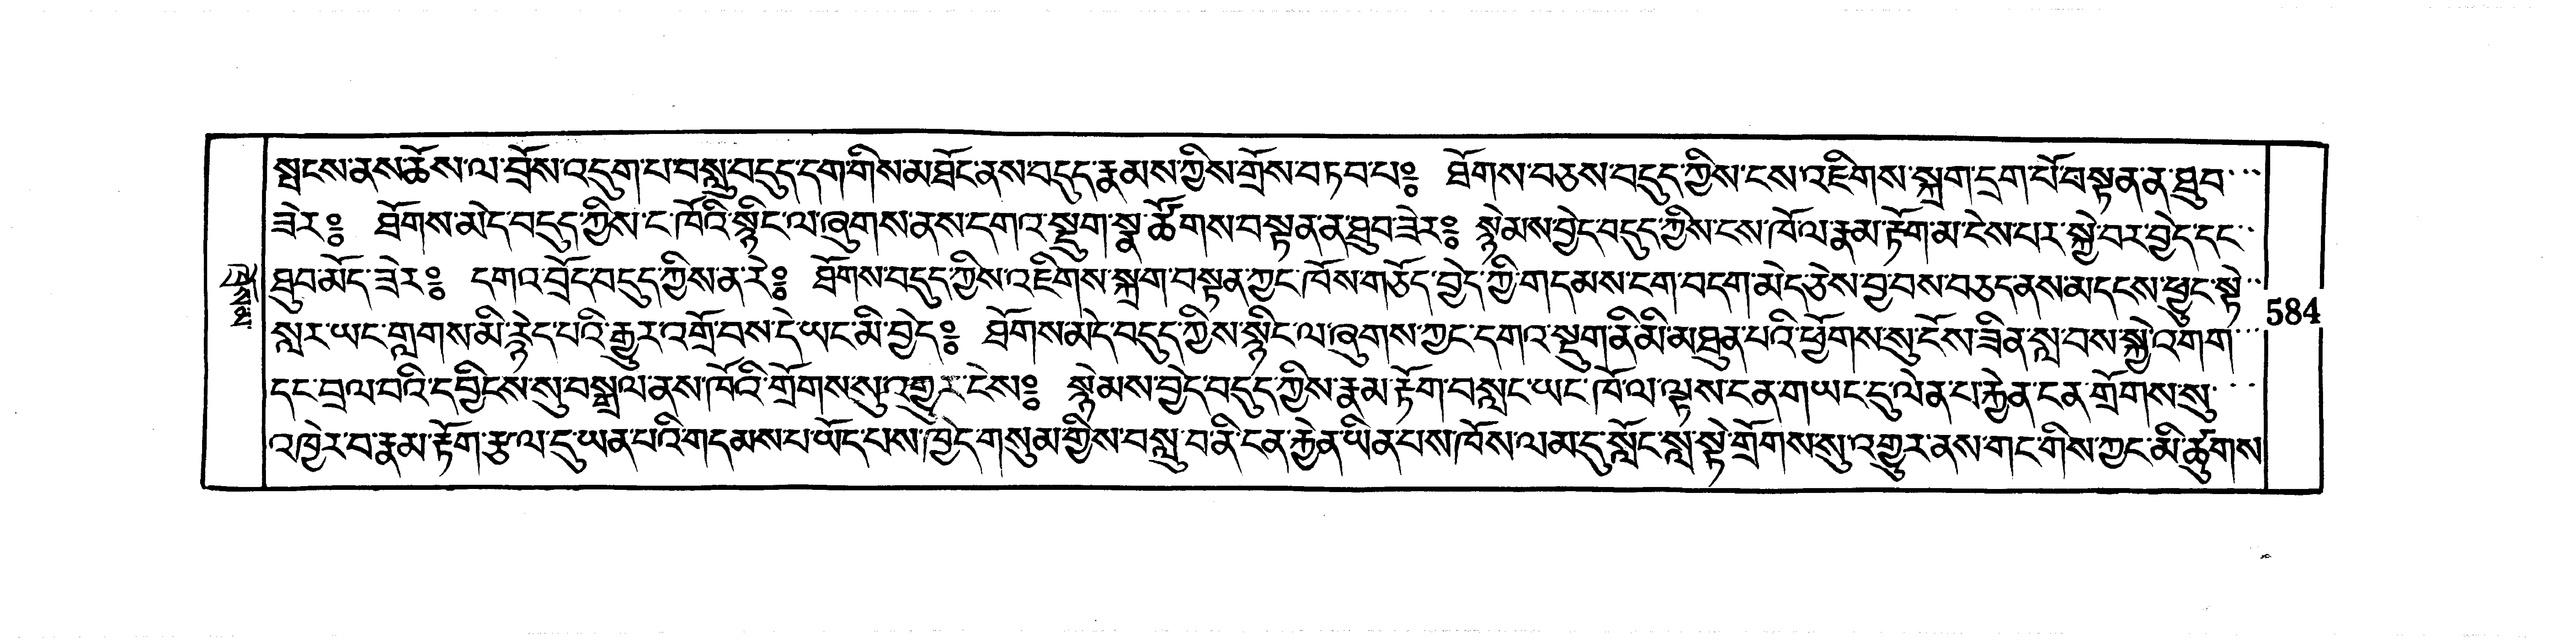 སྤངས་ནས་ཆོས་ལ་བྲོས་འདུག་པ་བསླུ་བདུད་དག་གིས་མ་ཐོང་ནས་བདུད་རྣམས་ཀྱིས་གྲོས་བཏབ་པ༔ ཐོགས་བཅས་བདུད་ཀྱིས་ངས་འཇིགས་སྐྲག་དྲག་པོ་བསྟན་ན་ཐུབ
ཟེར༔ ཐོགས་མེད་བདུད་ཀྱིས་ང་ཁོའི་སྙིང་ལ་ཞུགས་ནས་དགའ་སྡུག་སྣ་ཚོགས་བསྟན་ན་ཐུབ་ཟེར༔ སྙེམས་བྱེད་བདུད་ཀྱིས་ངས་ཁོ་ལ་རྣམ་རྟོག་མ་ངེས་པར་སྐྱེ་བར་བྱེད་དང
ཐུབ་མོད་ཟེར༔ དགའ་བྲོད་བདུད་ཀྱིས་ན་རེ༔ ཐོགས་བདུད་ཀྱིས་འཇིགས་སྐྲག་བསྟན་ཀྱང་ཁོས་གཅོད་བྱེད་ཀྱི་གདམས་ངག་བདག་མེད་ཅེས་བྱ་བས་བཅད་ནས་མ་དངས་ཕྱུང་སྟེ
སླར་ཡང་གླགས་མི་རྙེད་པའི་རྒྱུར་འགྲོ་བས་དེ་ཡང་མི་བྱེད༔ ཐོགས་མེད་བདུད་ཀྱིས་སྙིང་ལ་ཞུགས་ཀྱང་དགའ་སྡུག་ནི་མི་མཐུན་པའི་ཕྱོགས་སུ་ངོས་ཟིན་སླ་བས་སྐྱེ་འགག
དང་བྲལ་བའི་དབྱིངས་སུ་བསྒྲལ་ནས་ཁོའི་གྲོགས་སུ་འགྱུར་ངེས༔ སྙེམས་བྱེད་བདུད་ཀྱིས་རྣམ་རྟོག་བསླང་ཡང་ཁོ་ལ་ལྟས་ངན་གཡང་དུ་ལེན་པ་རྐྱེན་ངན་གྲོགས་སུ
འཁྱེར་བ་རྣམ་རྟོག་རྩལ་དུ་ཡན་པའི་གདམས་པ་ཡོད་པས་ཁྱེད་གསུམ་གྱིས་བསླུ་བ་ནི་ངན་རྐྱེན་ཡིན་པས་ཁོས་ལམ་དུ་སློང་སླ་སྟེ་གྲོགས་སུ་འགྱུར་ནས་གང་གིས་ཀྱང་མི་ཚུགས
584